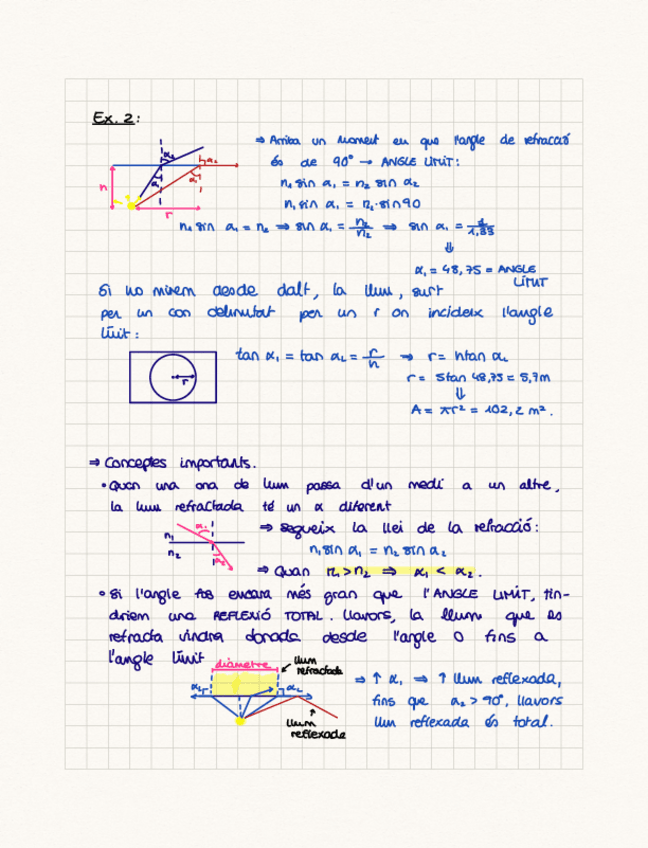 Ex. 2:
⇒ Arriba un moment en que l'angle de refracció
és de 90° → ANGLE LÍMIT:
n₁ sin α₁ = n₂ sin α₂
n₁ sin α₁ = n₂·sin90
n₁ sin α₁ = n₂ ⇒ sin α₁ = n₂/n₂ ⇒ sin α₁ = 1/1,33
⇓
α₁ = 48,75 = ANGLE
LÍMIT
h
r
α₁
α₂
α₁
α₂
Si ho mirem desde dalt, la llum, surt
per un con delimitat per un r on incideix l'angle
límit:
r
tan α₁ = tan α_L = r/h → r = h tan α_L
r = 5tan 48,75 = 5,7m
⇓
A = πr² = 102,2 m².
⇒ Conceptes importants.
• Quan una ona de llum passa d'un medi a un altre,
la llum refractada té un α diferent
n₁
n₂
α₁
α₂
⇒ segueix la llei de la refracció:
n₁ sin α₁ = n₂ sin α₂
⇒ Quan n₁>n₂ ⇒ α₁ < α₂.
• Si l'angle fos encara més gran que l'ANGLE LÍMIT, tin-
driem una REFLEXIÓ TOTAL. Llavors, la llum que es
refracta vindrà donada desde l'angle 0 fins a
l'angle límit
diàmetre
llum
refractada
α₂
α₂
llum
reflexada
⇒ ↑ α₁ → ↑ llum reflexada,
fins que α₂ > 90°, llavors
llum reflexada és total.